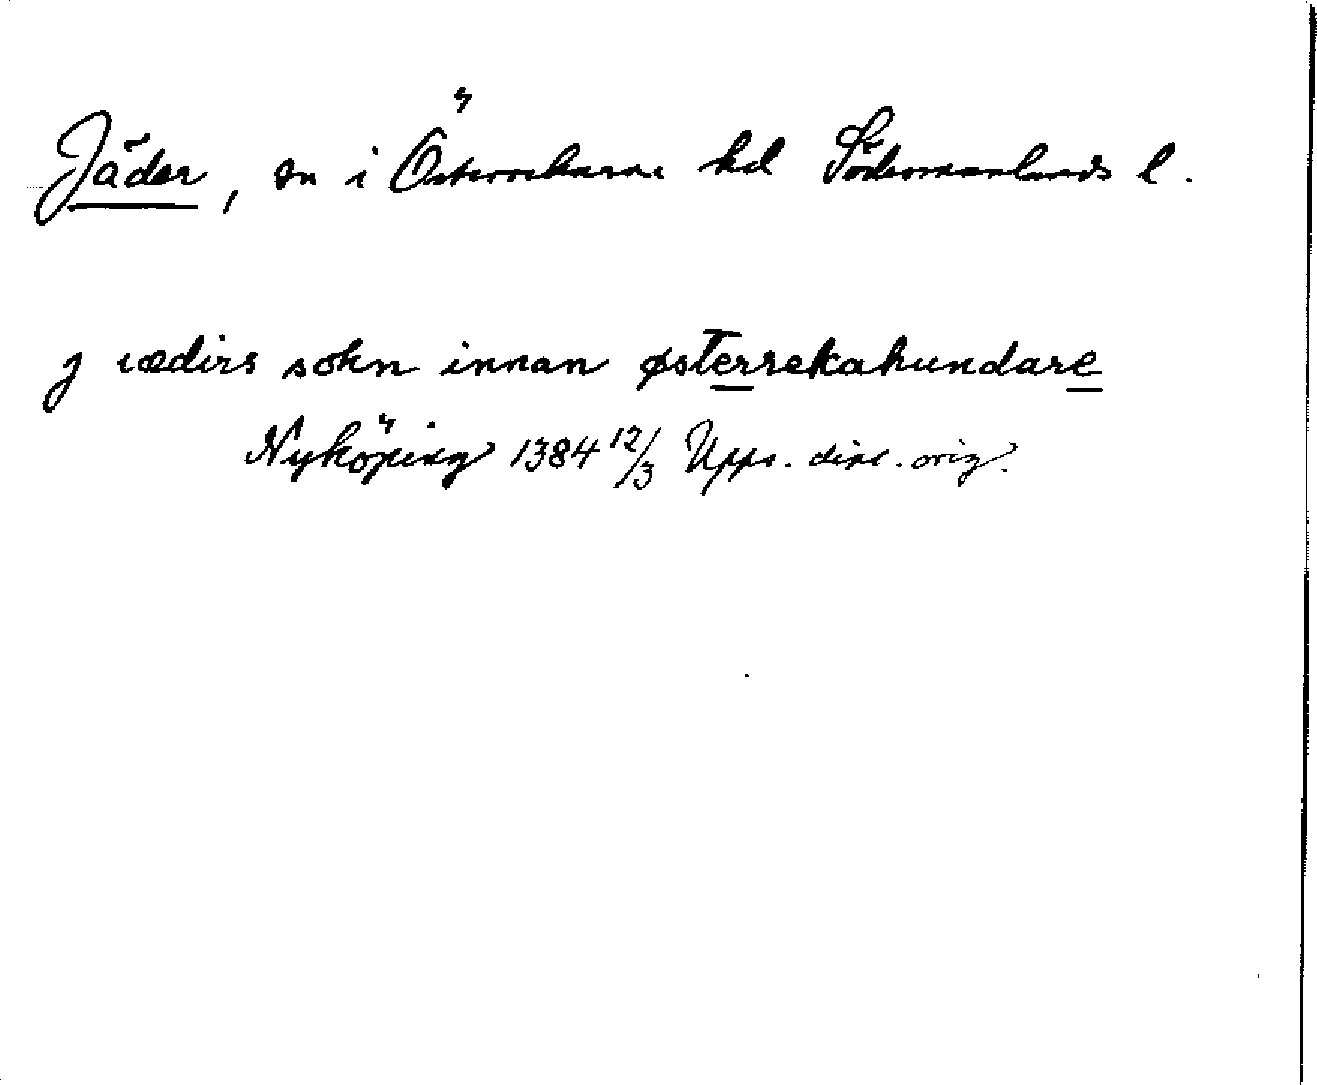 Jäder, sn i Österrekarne hd Södermanlands l.
j iædirs sokn innan østerrekahundare
Nyköping 1384 12/3 Upps. dipl. orig.